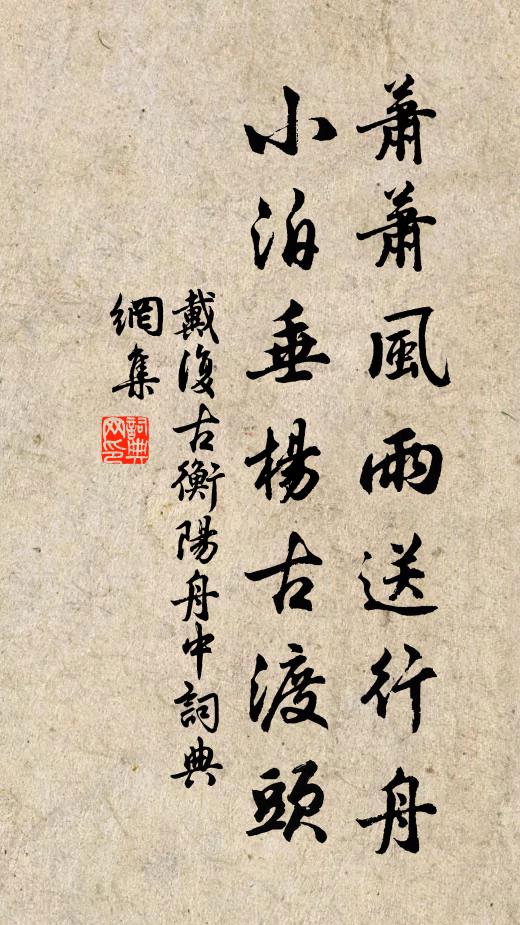 蕭蕭風雨送行舟
小泊垂楊古渡頭
戴復古衡陽舟中詞典
網集
詞典
网印